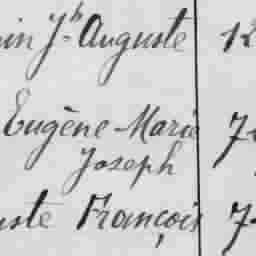 in Jh Auguste 12
Eugène-Marie 7
Joseph
ste François 7